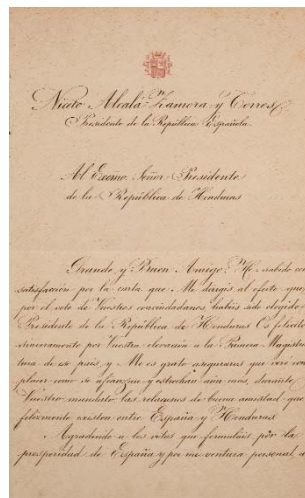 Niceto Alcalá-Zamora y Torres,
Presidente de la República Española
Al Excmo. Señor Presidente
de la República de Honduras
Grande y Buen Amigo: He sabido con
satisfacción por la carta que Me dirigís al efecto que
por el voto de Vuestros conciudadanos, habéis sido elegido
Presidente de la República de Honduras Os felicito
sinceramente por Vuestra elevación a la Primera Magistra
tura de ese país y Me es grato aseguraros que veré con
placer como se afianzan y estrechan aún más, durante
Vuestro mandato las relaciones de buena amistad que
felizmente existen entre España y Honduras
Agradezco los votos que formuláis por la
prosperidad de España y por mi ventura personal, a